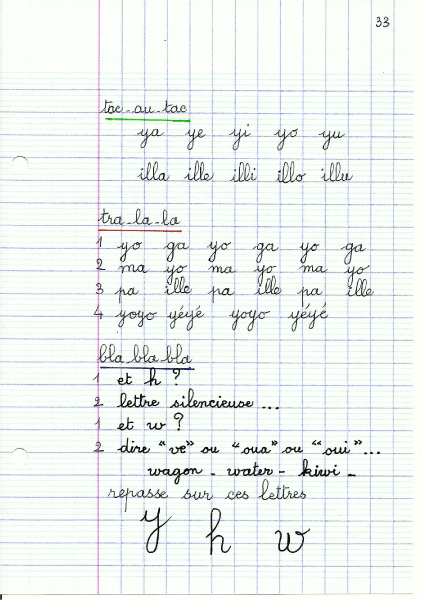 33
tac-au-tac
ya ye yi yo yu
illa ille illi illo illu
tra-la-la
1 yo ga yo ga yo ga
2 ma yo ma yo ma yo
3 pa ille pa ille pa ille
4 yoyo yéyé yoyo yéyé
bla bla bla
1 et h ?
2 lettre silencieuse ...
1 et w ?
2 dire "ve" ou "oua" ou "oui"...
wagon - water - kiwi -
repasse sur ces lettres
y h w